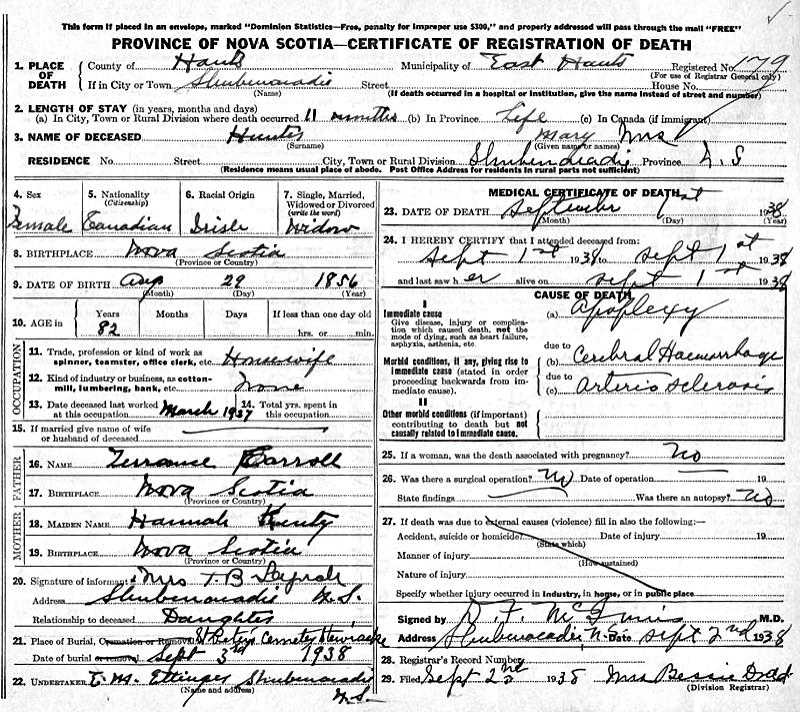 This form if placed in an envelope, marked "Dominion Statistics—Free, penalty for improper use $300," and properly addressed will pass through the mail "FREE"
PROVINCE OF NOVA SCOTIA—CERTIFICATE OF REGISTRATION OF DEATH
1. PLACE OF DEATH County of Hants Municipality of East Hants Registered No. 179
(For use of Registrar General only)
If in City or Town Shubenacadie Street House No.
(Name) (If death occurred in a hospital or institution, give the name instead of street and number)
2. LENGTH OF STAY (in years, months and days)
(a) In City, Town or Rural Division where death occurred 11 months (b) In Province Life (c) In Canada (if immigrant)
3. NAME OF DECEASED Hunter Mary Mrs
(Surname) (Given name or names)
RESIDENCE No. Street City, Town or Rural Division Shubenacadie Province N. S
(Residence means usual place of abode. Post Office Address for residents in rural parts not sufficient)
4. Sex 5. Nationality (Citizenship) 6. Racial Origin 7. Single, Married, Widowed or Divorced (write the word)
Female Canadian Irish Widow
8. BIRTHPLACE Nova Scotia
(Province or Country)
9. DATE OF BIRTH Aug 29 1856
(Month) (Day) (Year)
10. AGE in Years Months Days If less than one day old
82 hrs. or min.
OCCUPATION
11. Trade, profession or kind of work as spinner, teamster, office clerk, etc. Housewife
12. Kind of industry or business, as cotton-mill, lumbering, bank, etc. None
13. Date deceased last worked at this occupation March 1937 14. Total yrs. spent in this occupation
15. If married give name of wife or husband of deceased
FATHER
16. NAME Terrance Carroll
17. BIRTHPLACE Nova Scotia
(Province or Country)
MOTHER
18. MAIDEN NAME Hannah
19. BIRTHPLACE Nova Scotia
(Province or Country)
20. Signature of informant Mrs T. B
Address Shubenacadie N. S.
Relationship to deceased Daughter
21. Place of Burial, Cremation or Removal Cemetery
Date of burial or removal Sept 3rd 1938
22. UNDERTAKER E. M. Ettinger Shubenacadie
(Name and address) N. S.
MEDICAL CERTIFICATE OF DEATH
23. DATE OF DEATH September 1st 1938
(Month) (Day) (Year)
24. I HEREBY CERTIFY that I attended deceased from:
Sept 1st 1938 to Sept 1st 1938
and last saw her alive on Sept 1st 1938
CAUSE OF DEATH
I
Immediate cause
Give disease, injury or complication which caused death, not the mode of dying, such as heart failure, asphyxia, asthenia, etc.
(a) Apoplexy
due to
Morbid conditions, if any, giving rise to immediate cause (stated in order proceeding backwards from immediate cause).
(b) Cerebral Haemorrhage
due to
(c) Arterio sclerosis
II
Other morbid conditions (if important) contributing to death but not causally related to immediate cause.
25. If a woman, was the death associated with pregnancy? No
26. Was there a surgical operation? No Date of operation 19
State findings Was there an autopsy? No
27. If death was due to external causes (violence) fill in also the following:—
Accident, suicide or homicide? Date of injury 19
(State which)
Manner of injury
(How sustained)
Nature of injury
Specify whether injury occurred in industry, in home, or in public place
Signed by M.D.
Address Shubenacadie N.S. Date Sept 2nd 1938
28. Registrar's Record Number
29. Filed Sept 1938 Mrs Bessie
(Division Registrar)